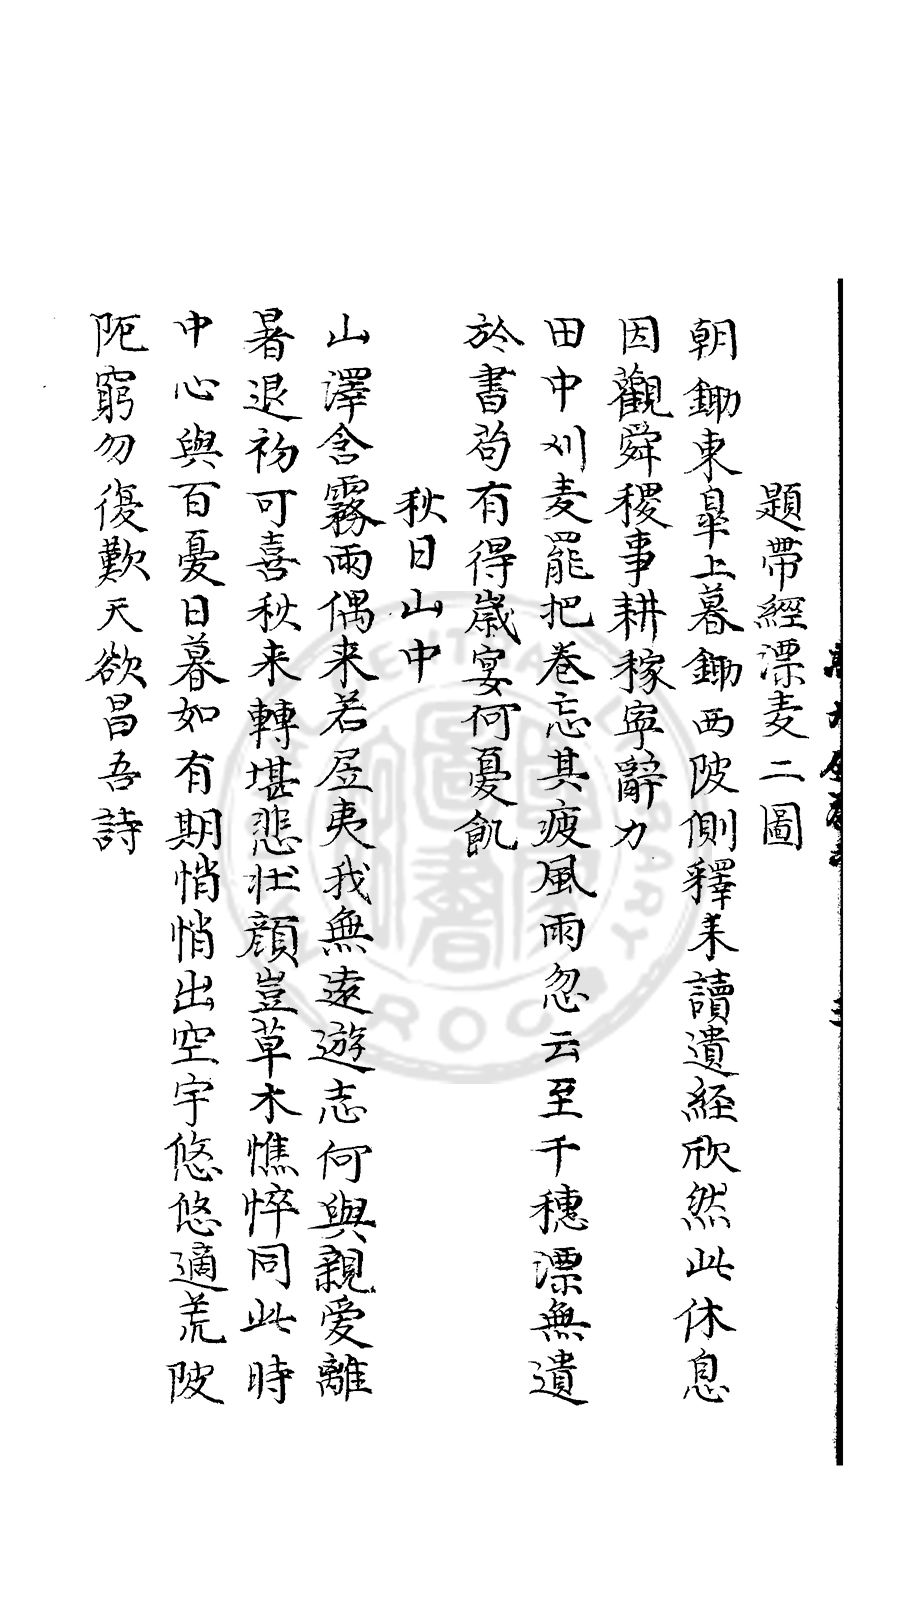 題帶經漂麦二圖
朝鋤東皐上暮鋤西陂側釋耒讀遺経欣然此休息
因觀舜稷事耕稼寧辭力
田中刈麦罷把卷忘其疲風雨忽云至千穗漂無遺
於書苟有得歲宴何憂飢
秋日山中
山澤含霧雨偶来若居夷我無遠遊志何與親爱離
暑退初可喜秋来轉堪悲壮顔豈草木憔悴同此時
中心與百憂日暮如有期悄悄出空宇悠悠適荒陂
阨窮勿復歎天欲昌吾詩